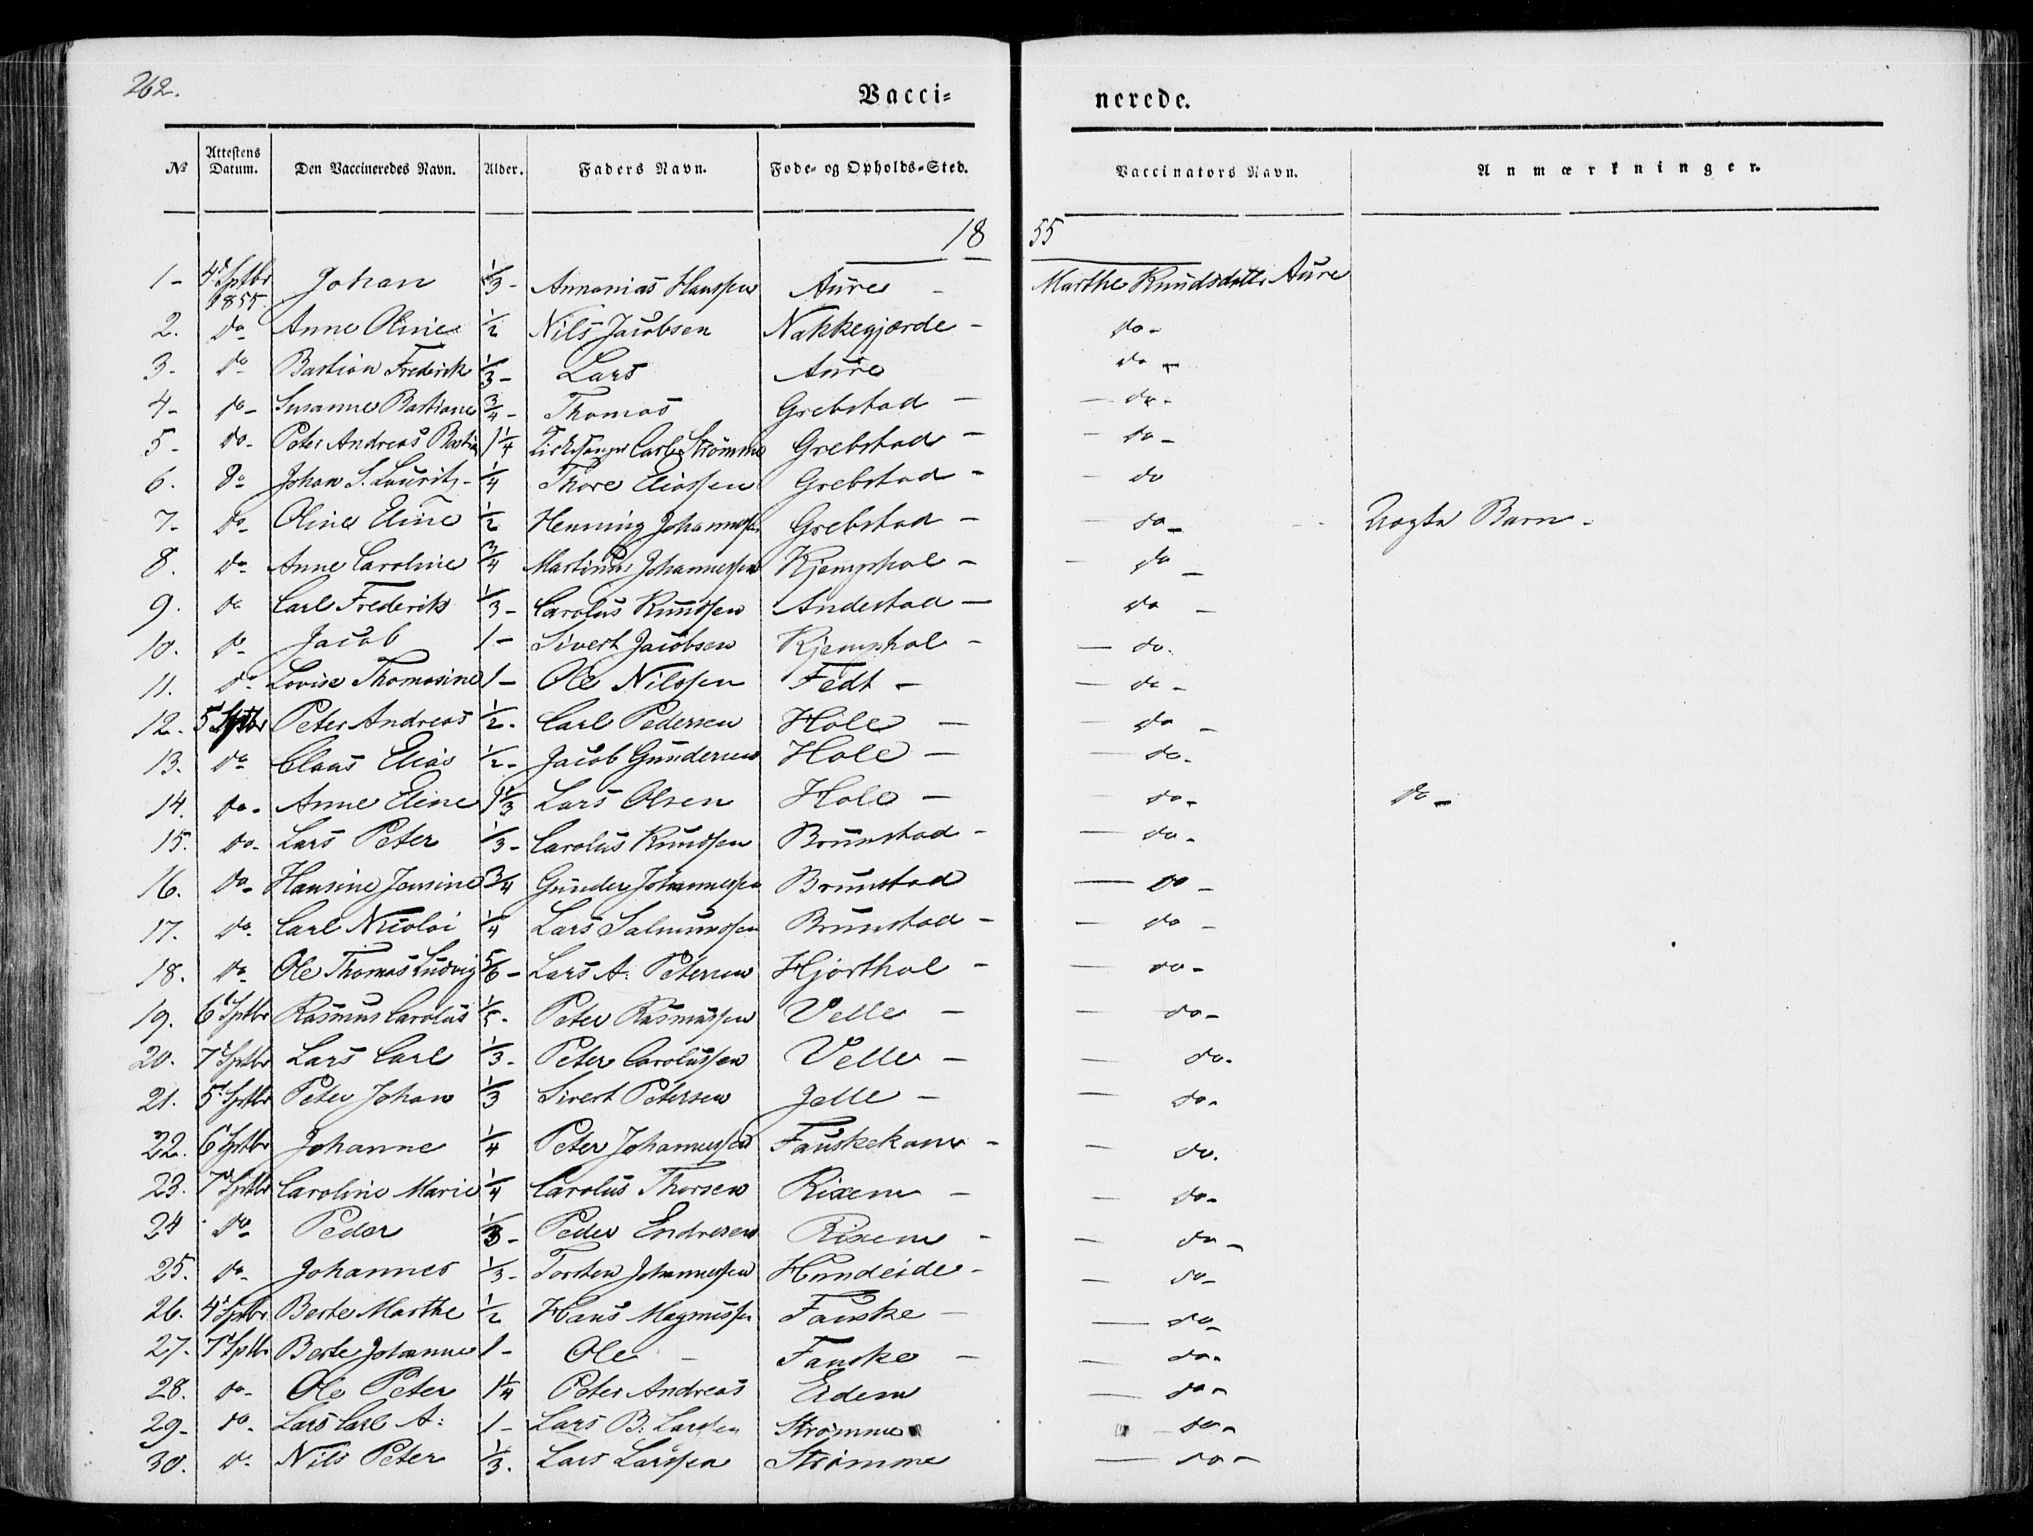 262.
Vacci- nerede.
No Attestens Datum. Den Vaccineredes Navn. Alder. Faders Navn. Føde- og Opholds-Sted. Vaccinators Navn. Anmærkninger.
18 55
1 - 4de Septbr 1855. Johan 1/3 - Annanias Hanssen Aure - Marthe Knudsdatter Aure
2. do Anne Oline 1/2 Nils Jacobsen Nakkegjærde - do -
3 - do Bastian Frederik 1/3 - Lars Aure do -
4 - do - Susanne Bastiane 3/4 - Thomas Grebstad - - do -
5 - do - Peter Andreas Bastian 1 1/4 Kirkesanger Carl Strømme Grebstad - - do -
6. do Johan S. Laurits - 1/4 Thore Eliassen Grebstad - - do
7 - do - Oline Eline 1/2 Henning Johannessen Grebstad - - do - Uægte Barn -
8. do - Anne Caroline 3/4 Martinus Johannessen Kjemphol - - do -
9. do Carl Frederik 1/3 - Carolus Knudsen Andestad - do -
10. do - Jacob 1 - Sivert Jacobsen Kjemphol - - do.
11. do - Lovise Thomasine 1 - Ole Nilssen Fedt - - do -
12. 5 Septbr Peter Andreas 1/2 - Carl Pedersen Hole - - do -
13. do Claus Elias 1/2 - Jacob Gundersen Hole - - do -
14. do - Anne Eline 1 1/3 Lars Olsen Hole - - do - do -
15. do - Lars Peter 1/3 - Carolus Knudsen Brunstad - - do -
16. do - Hansine Jensine 3/4 Gunder Johannessen Brunstad - do -
17. do - Carl Nicolai 1/4 Lars Salmundsen Brunstad - - do -
18. do - Ole Thomas Ludvig 5/6 - Lars A: Petersen Hjorthol - - do -
19. 6 Septbr Rasmus Carolus 1/2 - Peter Rasmussen Velle - - do -
20. 7 Septbr Lars Carl 1/3 - Peter Carolussen Velle - - do -
21. 5 Septbr Peter Johan 1/3 Sivert Petersen Jelle - - do -
22. 6 Septbr Johanne 1/4 Peter Johannessen - - do.
23. 7 Septbr Caroline Marie 1/4 Carolus Thorsen Rixem - - do -
24 do Peder 1/3 - Peder Endresen Rixem - - do -
25. do - Johannes 1/3 - Torsten Johannessen Hundeide - - do -
26. 4 Septbr Berte Marthe 1/2 Hans Magnussen Fauske - - do -
27. 7 Septbr Berte Johanne 1 - Ole - Fauske - - do -
28. do - Ole Peter 1 1/4 Peter Andreas Eidem - do -
29 - do - Lars Carl A: 1 - Lars B. Larsen Strømme - do -
30. do Nils Peter 1/3. Lars Larssen Strømme - do -